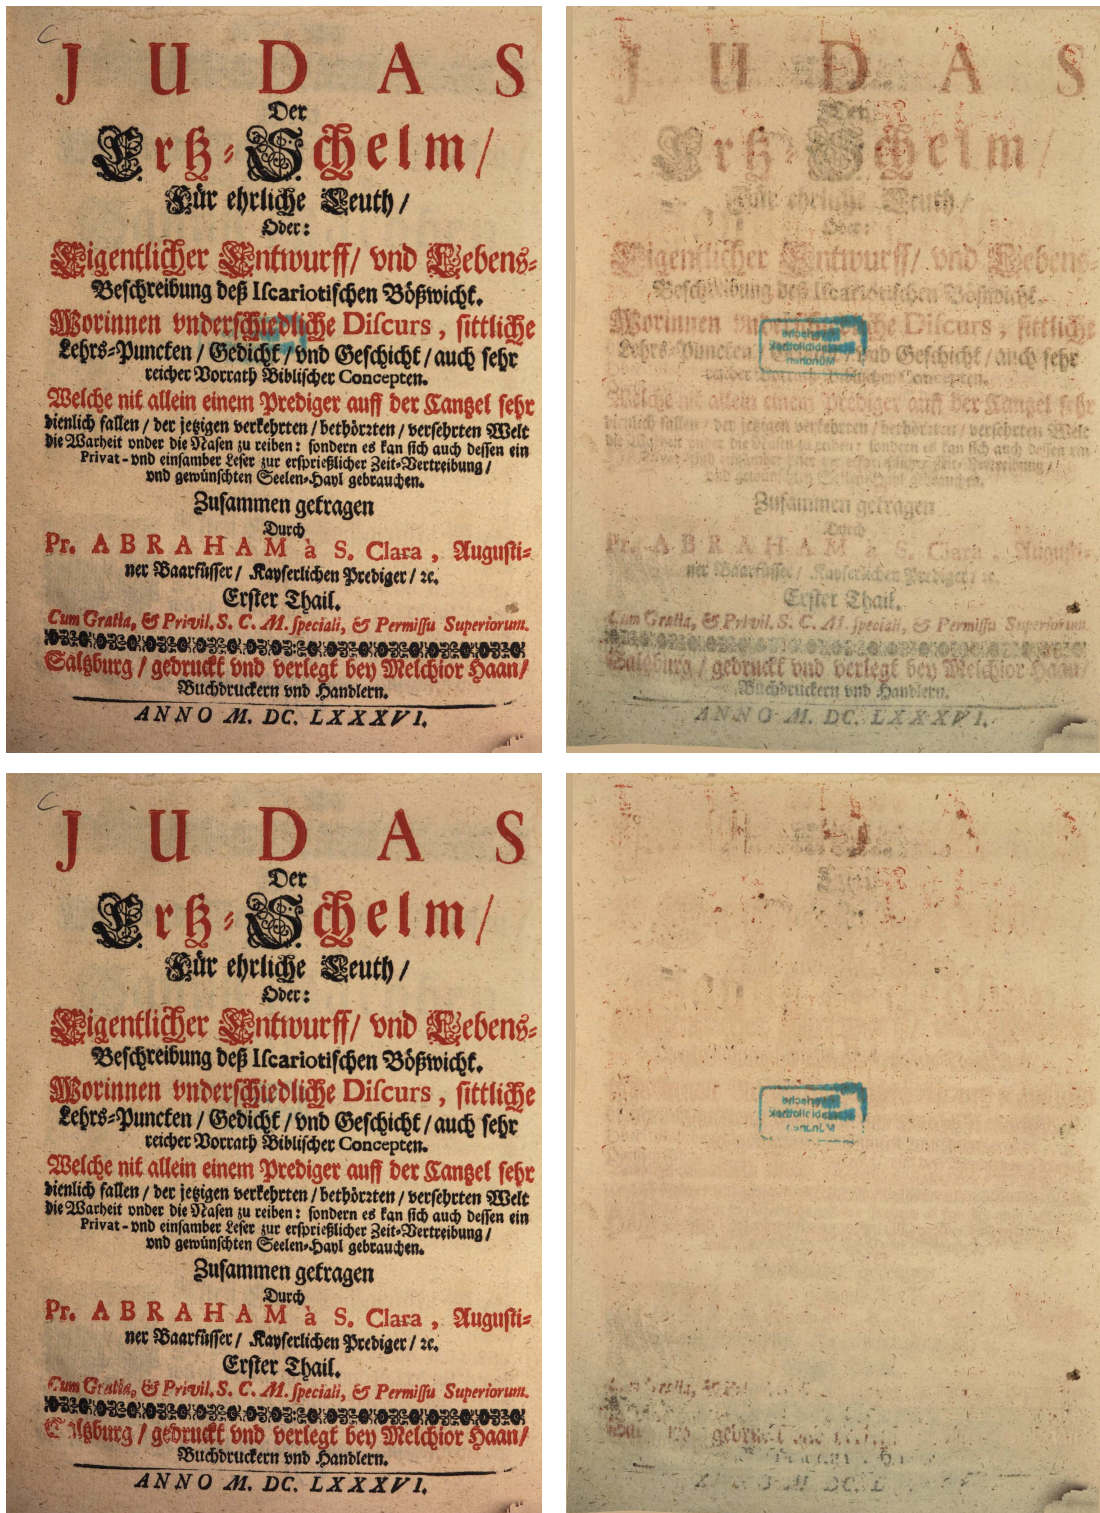 J U D A S
Der
Ertz⸗Schelm/
Für ehrliche Leuth/
Oder:
Eigentlicher Entwurff/ vnd Lebens⸗
Beschreibung deß Iſcariotiſchen Bößwicht.
Worinnen vnderſchiedliche Diſcurs, ſittliche
Lehrs⸗Puncten / Gedicht / vnd Geſchicht / auch ſehr
reicher Vorrath Bibliſcher Concepten.
Welche nit allein einem Prediger auff der Cantzel ſehr
dienlich fallen / der jetzigen verkehrten / bethörꝛten / verſehrten Welt
die Warheit vnder die Naſen zu reiben: ſondern es kan ſich auch deſſen ein
Privat-vnd einſamber Leſer zur erſprießlicher Zeit⸗Vertreibung /
vnd gewünſchten Seelen⸗Hayl gebrauchen.
Zuſammen getragen
Durch
Pr. ABRAHAM à S. Clara, Auguſti⸗
ner Baarfüſſer / Kayſerlichen Prediger / ꝛc.
Erſter Thail.
Cum Gratia, & Privil. S. C. M. ſpeciali, & Permiſſu Superiorum.
Saltzburg / gedruckt vnd verlegt bey Melchior Haan/
Buchdruckern vnd Handlern.
ANNO M. DC. LXXXVI.
J U D A S
Der
Ertz⸗Schelm/
Für ehrliche Leuth/
Oder:
Eigentlicher Entwurff/ vnd Lebens⸗
Beschreibung deß Iſcariotiſchen Bößwicht.
Worinnen Diſcurs, ſittliche
Lehrs⸗Puncten vnd Geſchicht / auch ſehr
Bayerische
Staatsbibliothek
München
reicher Vorrath Bibliſcher Concepten.
Welche nit allein einem Prediger auff der Cantzel ſehr
Zuſammen getragen
Durch
Pr. ABRAHAM Clara Auguſti⸗
ner Baarfüſſer / Kayſerlichen Prediger / ꝛc.
Erſter Thail.
Cum Gratia, & Privil. S. C. M. ſpeciali, & Permiſſu Superiorum.
Saltzburg / gedruckt vnd verlegt bey Melchior Haan/
Buchdruckern vnd Handlern.
ANNO M. DC. LXXXVI.
J U D A S
Der
Ertz⸗Schelm/
Für ehrliche Leuth/
Oder:
Eigentlicher Entwurff/ vnd Lebens⸗
Beschreibung deß Iſcariotiſchen Bößwicht.
Worinnen vnderſchiedliche Diſcurs, ſittliche
Lehrs⸗Puncten / Gedicht / vnd Geſchicht / auch ſehr
reicher Vorrath Bibliſcher Concepten.
Welche nit allein einem Prediger auff der Cantzel ſehr
dienlich fallen / der jetzigen verkehrten / bethörꝛten / verſehrten Welt
die Warheit vnder die Naſen zu reiben: ſondern es kan ſich auch deſſen ein
Privat-vnd einſamber Leſer zur erſprießlicher Zeit⸗Vertreibung /
vnd gewünſchten Seelen⸗Hayl gebrauchen.
Zuſammen getragen
Durch
Pr. ABRAHAM à S. Clara, Auguſti⸗
ner Baarfüſſer / Kayſerlichen Prediger / ꝛc.
Erſter Thail.
Cum Gratia, & Privil. S. C. M. ſpeciali, & Permiſſu Superiorum.
Saltzburg / gedruckt vnd verlegt bey Melchior Haan/
Buchdruckern vnd Handlern.
ANNO M. DC. LXXXVI.
Bayerische
Staatsbibliothek
München